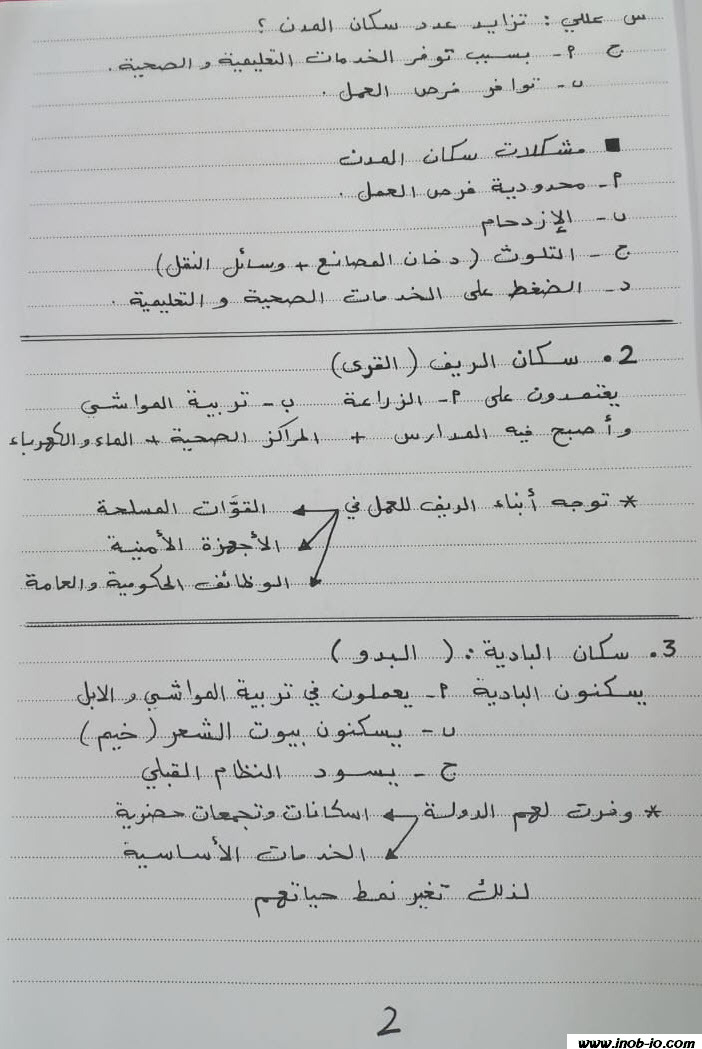 س عللي : تزايد عدد سكان المدن ؟
ج أ- بسبب توفر الخدمات التعليمية و الصحية .
ب- توافر فرص العمل .
■ مشكلات سكان المدن
أ- محدودية فرص العمل .
ب- الإزدحام
ج - التلوث ( دخان المصانع + وسائل النقل )
د- الضغط على الخدمات الصحية و التعليمية .
2. سكان الريف ( القرى )
يعتمدون على أ- الزراعة ب- تربية المواشي
و أصبح فيه المدارس + المراكز الصحية + الماء والكهرباء
* توجه أبناء الريف للعمل في القوَّات المسلحة
الأجهزة الأمنية
الوظائف الحكومية والعامة
3. سكان البادية : ( البدو )
يسكنون البادية أ- يعملون في تربية المواشي و الابل
ب- يسكنون بيوت الشعر ( خيم )
ج - يسود النظام القبلي
* وفرت لهم الدولة اسكانات وتجمعات حضرية
الخدمات الأساسية
لذلك تغير نمط حياتهم
2
www.inob-jo.com